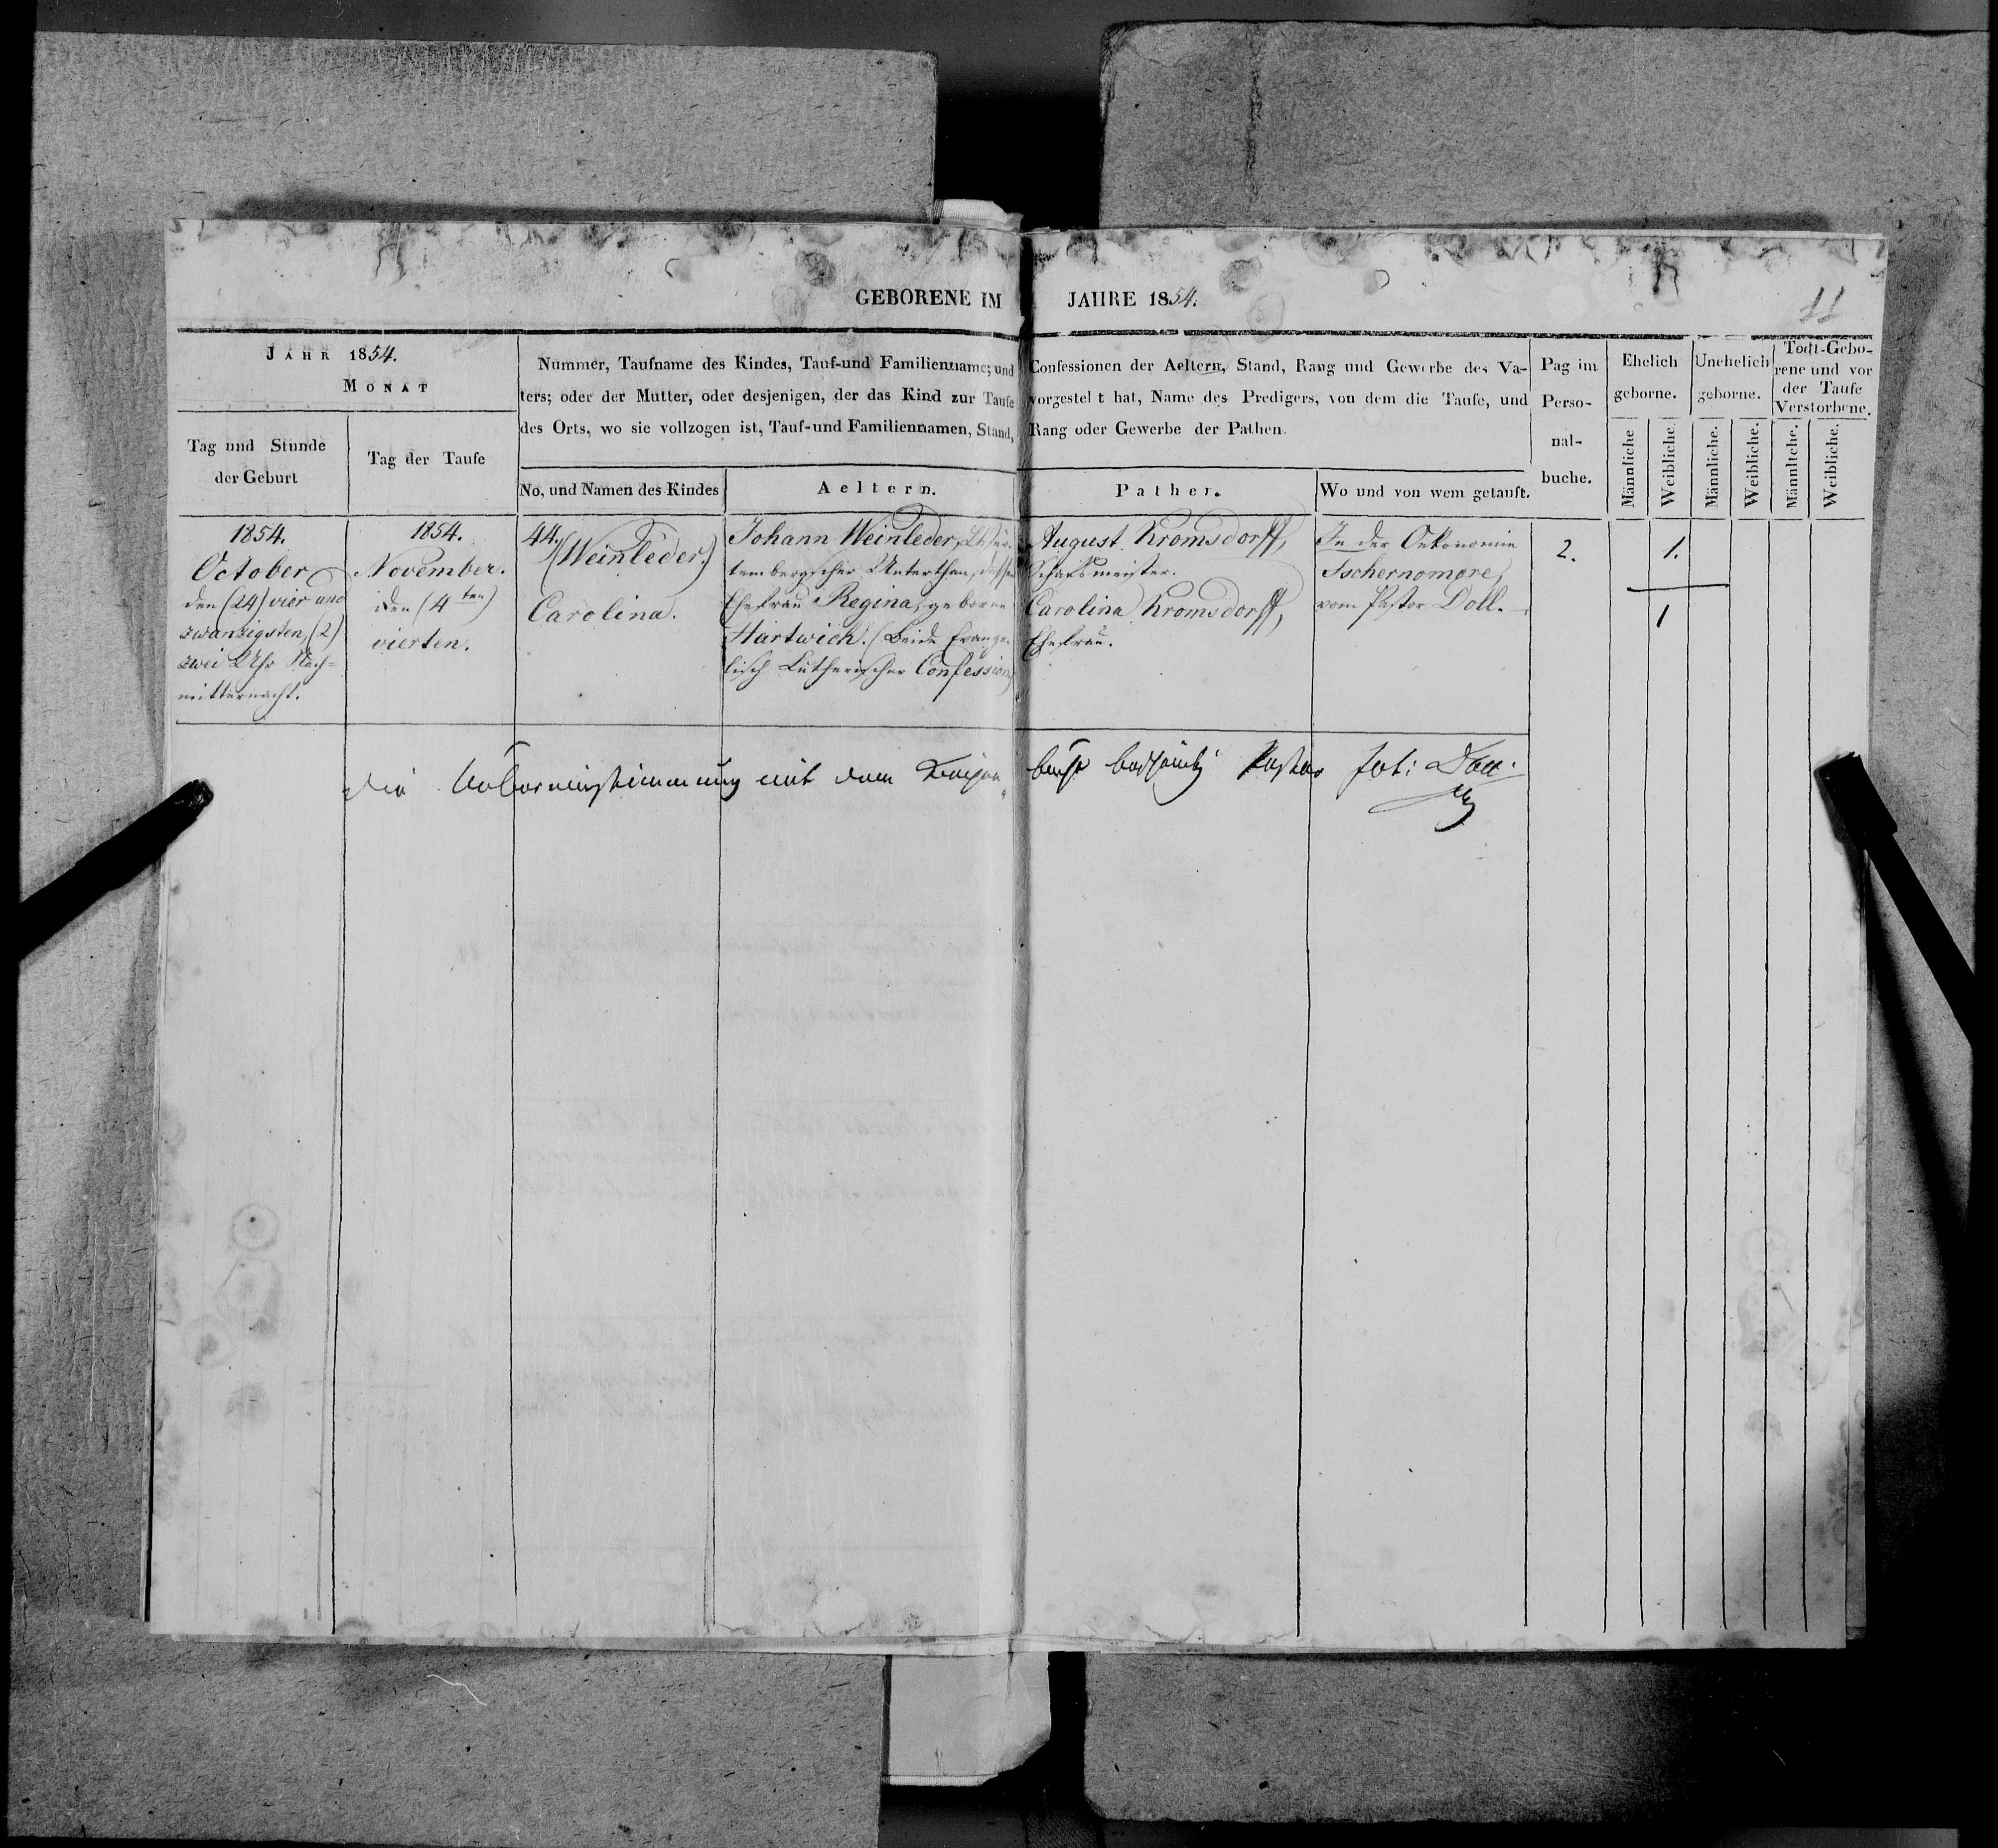 GEBORENE IM JAHRE 1854.
11
JAHR 1854.
MONAT
Tag und Stunde
der Geburt
Tag der Taufe
Nummer, Taufname des Kindes, Tauf-und Familienname; und Confessionen der Aeltern, Stand, Rang und Gewerbe des Va-
ters; oder der Mutter, oder desjenigen, der das Kind zur Taufe vorgestellt hat, Name des Predigers, von dem die Taufe, und
des Orts, wo sie vollzogen ist, Tauf-und Familiennamen, Stand, Rang oder Gewerbe der Pathen.
No, und Namen des Kindes
Aeltern.
Pather.
Wo und von wem getauft.
Pag im
Perso-
nal-
buche.
Ehelich
geborne.
Unehelich
geborne.
Todt-Gebo-
rene und vor
der Taufe
Verstorbene.
Männliche
Weibliche.
Männliche.
Weibliche.
Männliche.
Weibliche.
1854.
October
den (24) vier und
zwanzigsten, (2)
zwei Uhr Nach-
mitternacht.
1854.
November.
den (4ten)
vierten.
44.
(Weinleder.)
Carolina.
Johann Weinleder,
tembergscher Unterthan, dessen
Ehefrau Regina, geborne
Hartwich. (Beide Evange-
lisch Lutherischer Confession)
August Kromsdorff,
Schafsmeister.
Carolina Kromsdorff,
Ehefrau.
In der Oekonomie
Tschernomore,
vom Pastor Doll.
2.
1.
1
Die Uebereinstimmung mit dem Kirchen buche bescheinigt Pastor Joh: Doll.